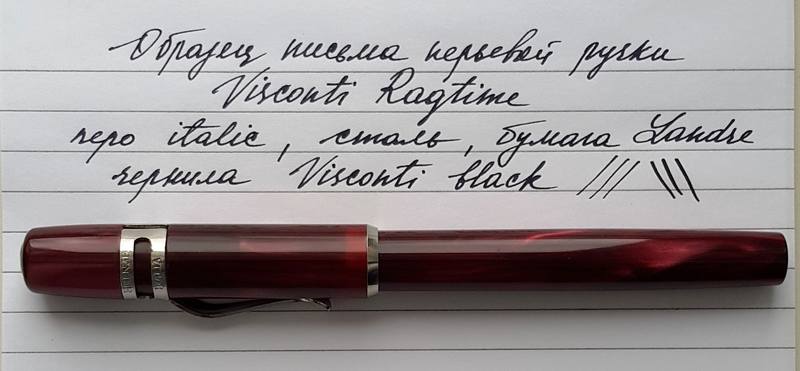 Образец письма перьевой ручки
Visconti Ragtime
перо italic, сталь, бумага Landre
чернила Visconti black /// \\\